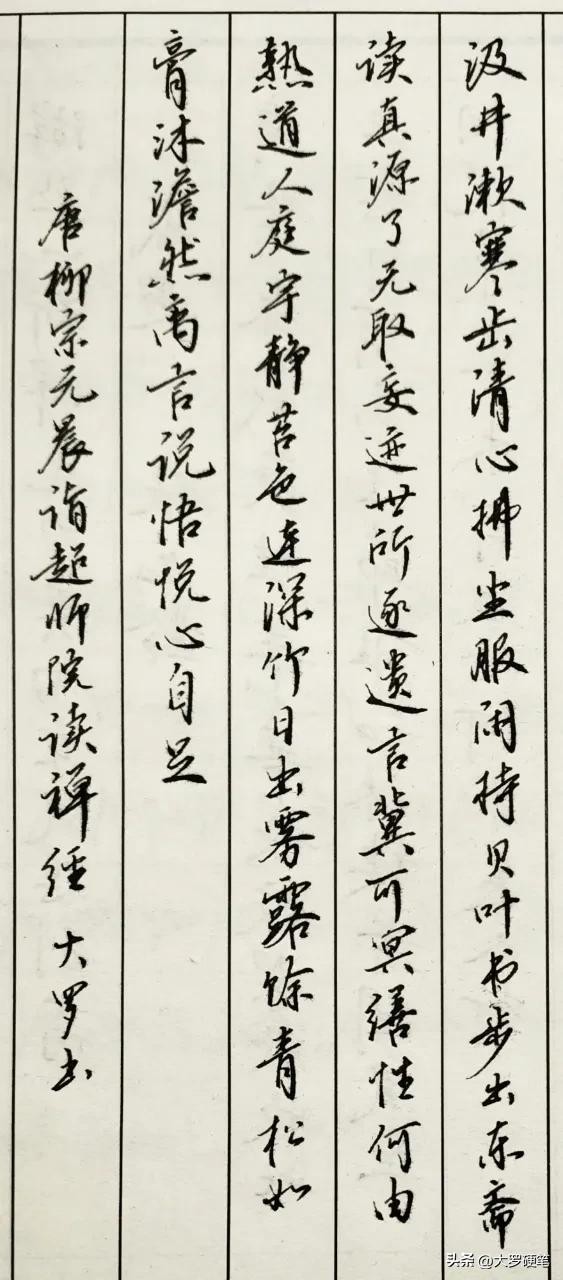 汲井漱寒齿清心拂尘服闲持贝叶书步出东斋
读真源了无取妄迹世所逐遗言冀可冥缮性何由
熟道人庭宇静苔色连深竹日出雾露馀青松如
膏沐澹然离言说悟悦心自足
唐柳宗元晨诣超师院读禅经 大罗书
头条 @大罗硬笔